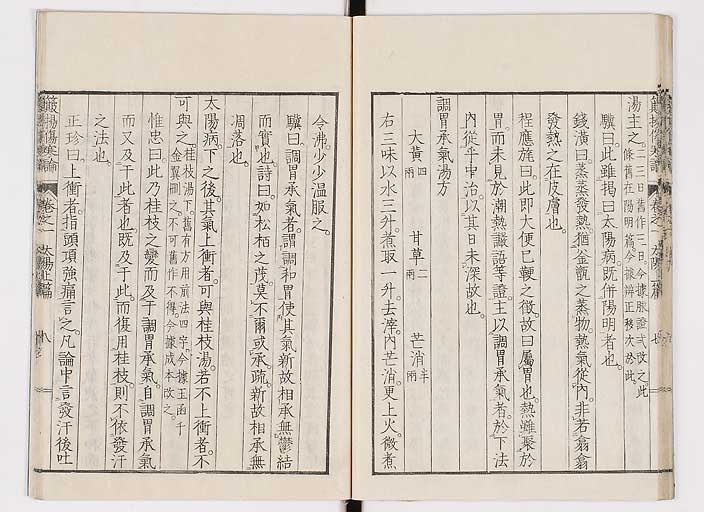 湯主之。二三日舊作三日。今據脈證式改之。此
條舊在陽明篇。今據辨正移次於此。
驥曰。此雖揭曰太陽病。既併陽明者也。
錢潢曰。蒸蒸發熱。猶釜甑之蒸物。熱氣從內。非若翕翕
發熱之在皮膚也。
程應旄曰。此即大便已鞕之徵。故曰屬胃也。熱雖聚於
胃。而未見於潮熱譫語等證。主以調胃承氣者。於下法
內從乎中治。以其日未深故也。
調胃承氣湯方
大黃四兩 甘草二兩 芒消半兩
右三味以水三升。煮取一升。去滓。內芒消。更上火微煮
令沸。少少溫服之。
驥曰。調胃承氣者。謂調和胃使其氣新故相承。無鬱結
而實也。詩曰。如松栢之茂。莫不爾或承。疏。新故相承無
凋落也。
太陽病下之後。其氣上衝者。可與桂枝湯。若不上衝者。不
可與之。桂枝湯下。舊有方用前法四字。今據玉函千
金翼刪之。不可舊作不得。今據成本改之。
惟忠曰。此乃桂枝之變而及于調胃承氣。自調胃承氣
而又及于此者也。既及于此。而復用桂枝。則不依發汗
之法也。
正珍曰。上衝者。指頭項強痛言之。凡論中言發汗後吐
傷寒論 卷之一 太陽上篇 八